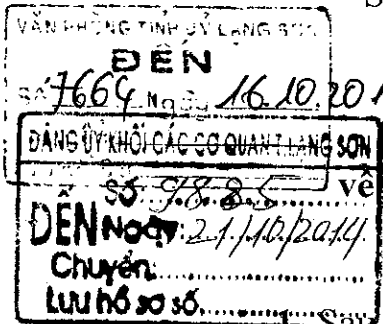 S
VĂN PHÒNG TỈNH UỶ LẠNG SƠN
ĐẾN
SỐ 7664 Ngày 16.10.201
ĐẢNG ỦY KHỐI CÁC CƠ QUAN T.LẠNG SƠN
Số: 9885 về
ĐẾN Ngày: 21/10/2014
Chuyển:
Lưu hồ sơ số
1. Sau